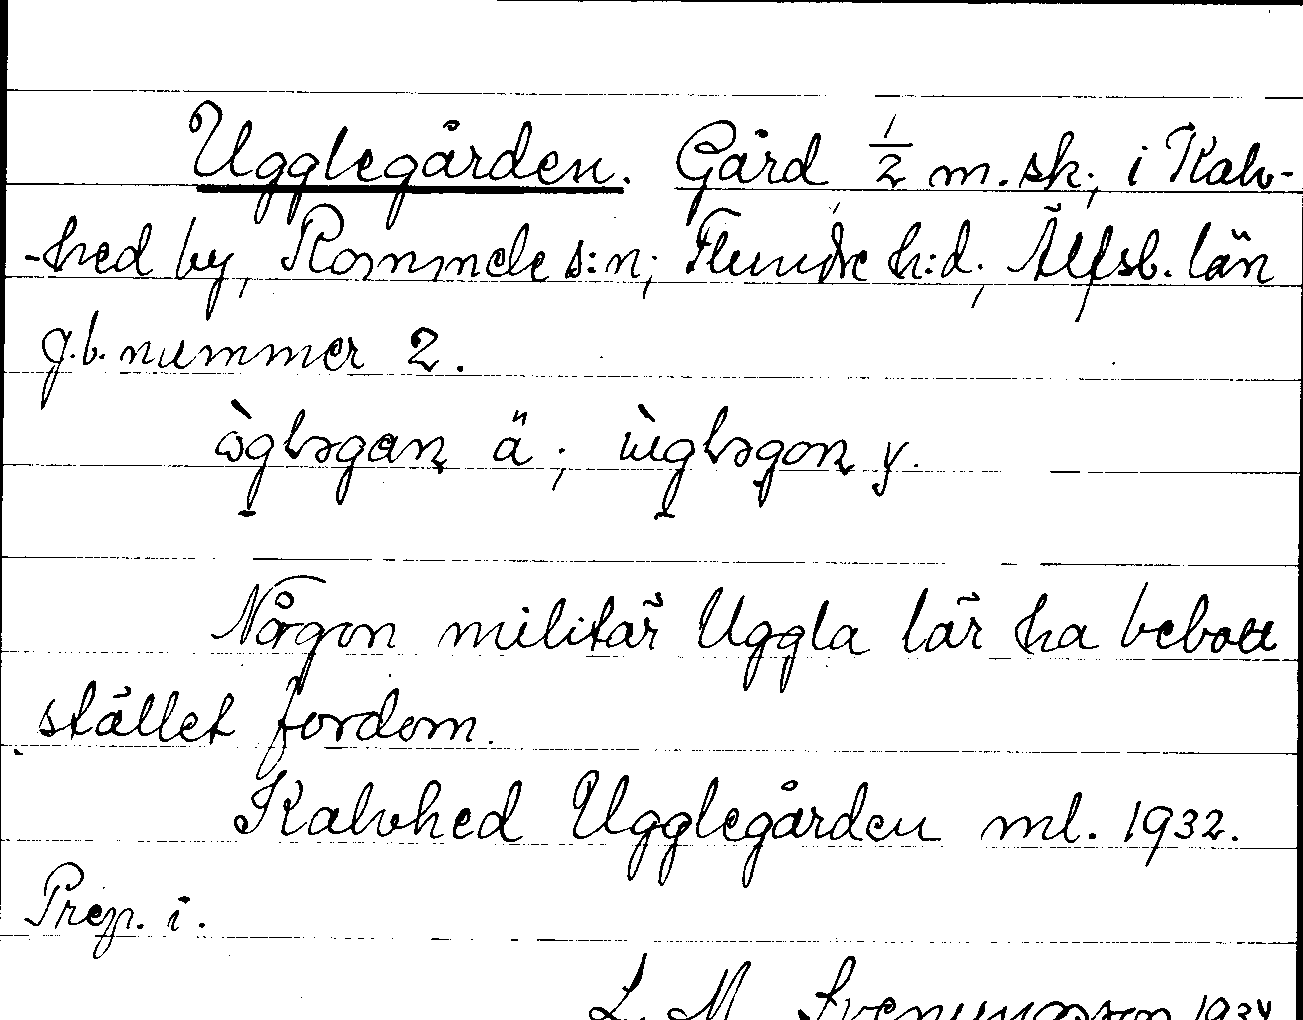 Ugglegården. Gård 1/2 m.sk., i Kalv-
-hed by, Rommele s:n; Flundre h:d; Älfsb. län
g.b. nummer 2.
ä; y.
Någon militär Uggla lär ha bebott
stället fordom.
Kalvhed Ugglegården ml. 1932.
Prep. i.
L. M. 1934